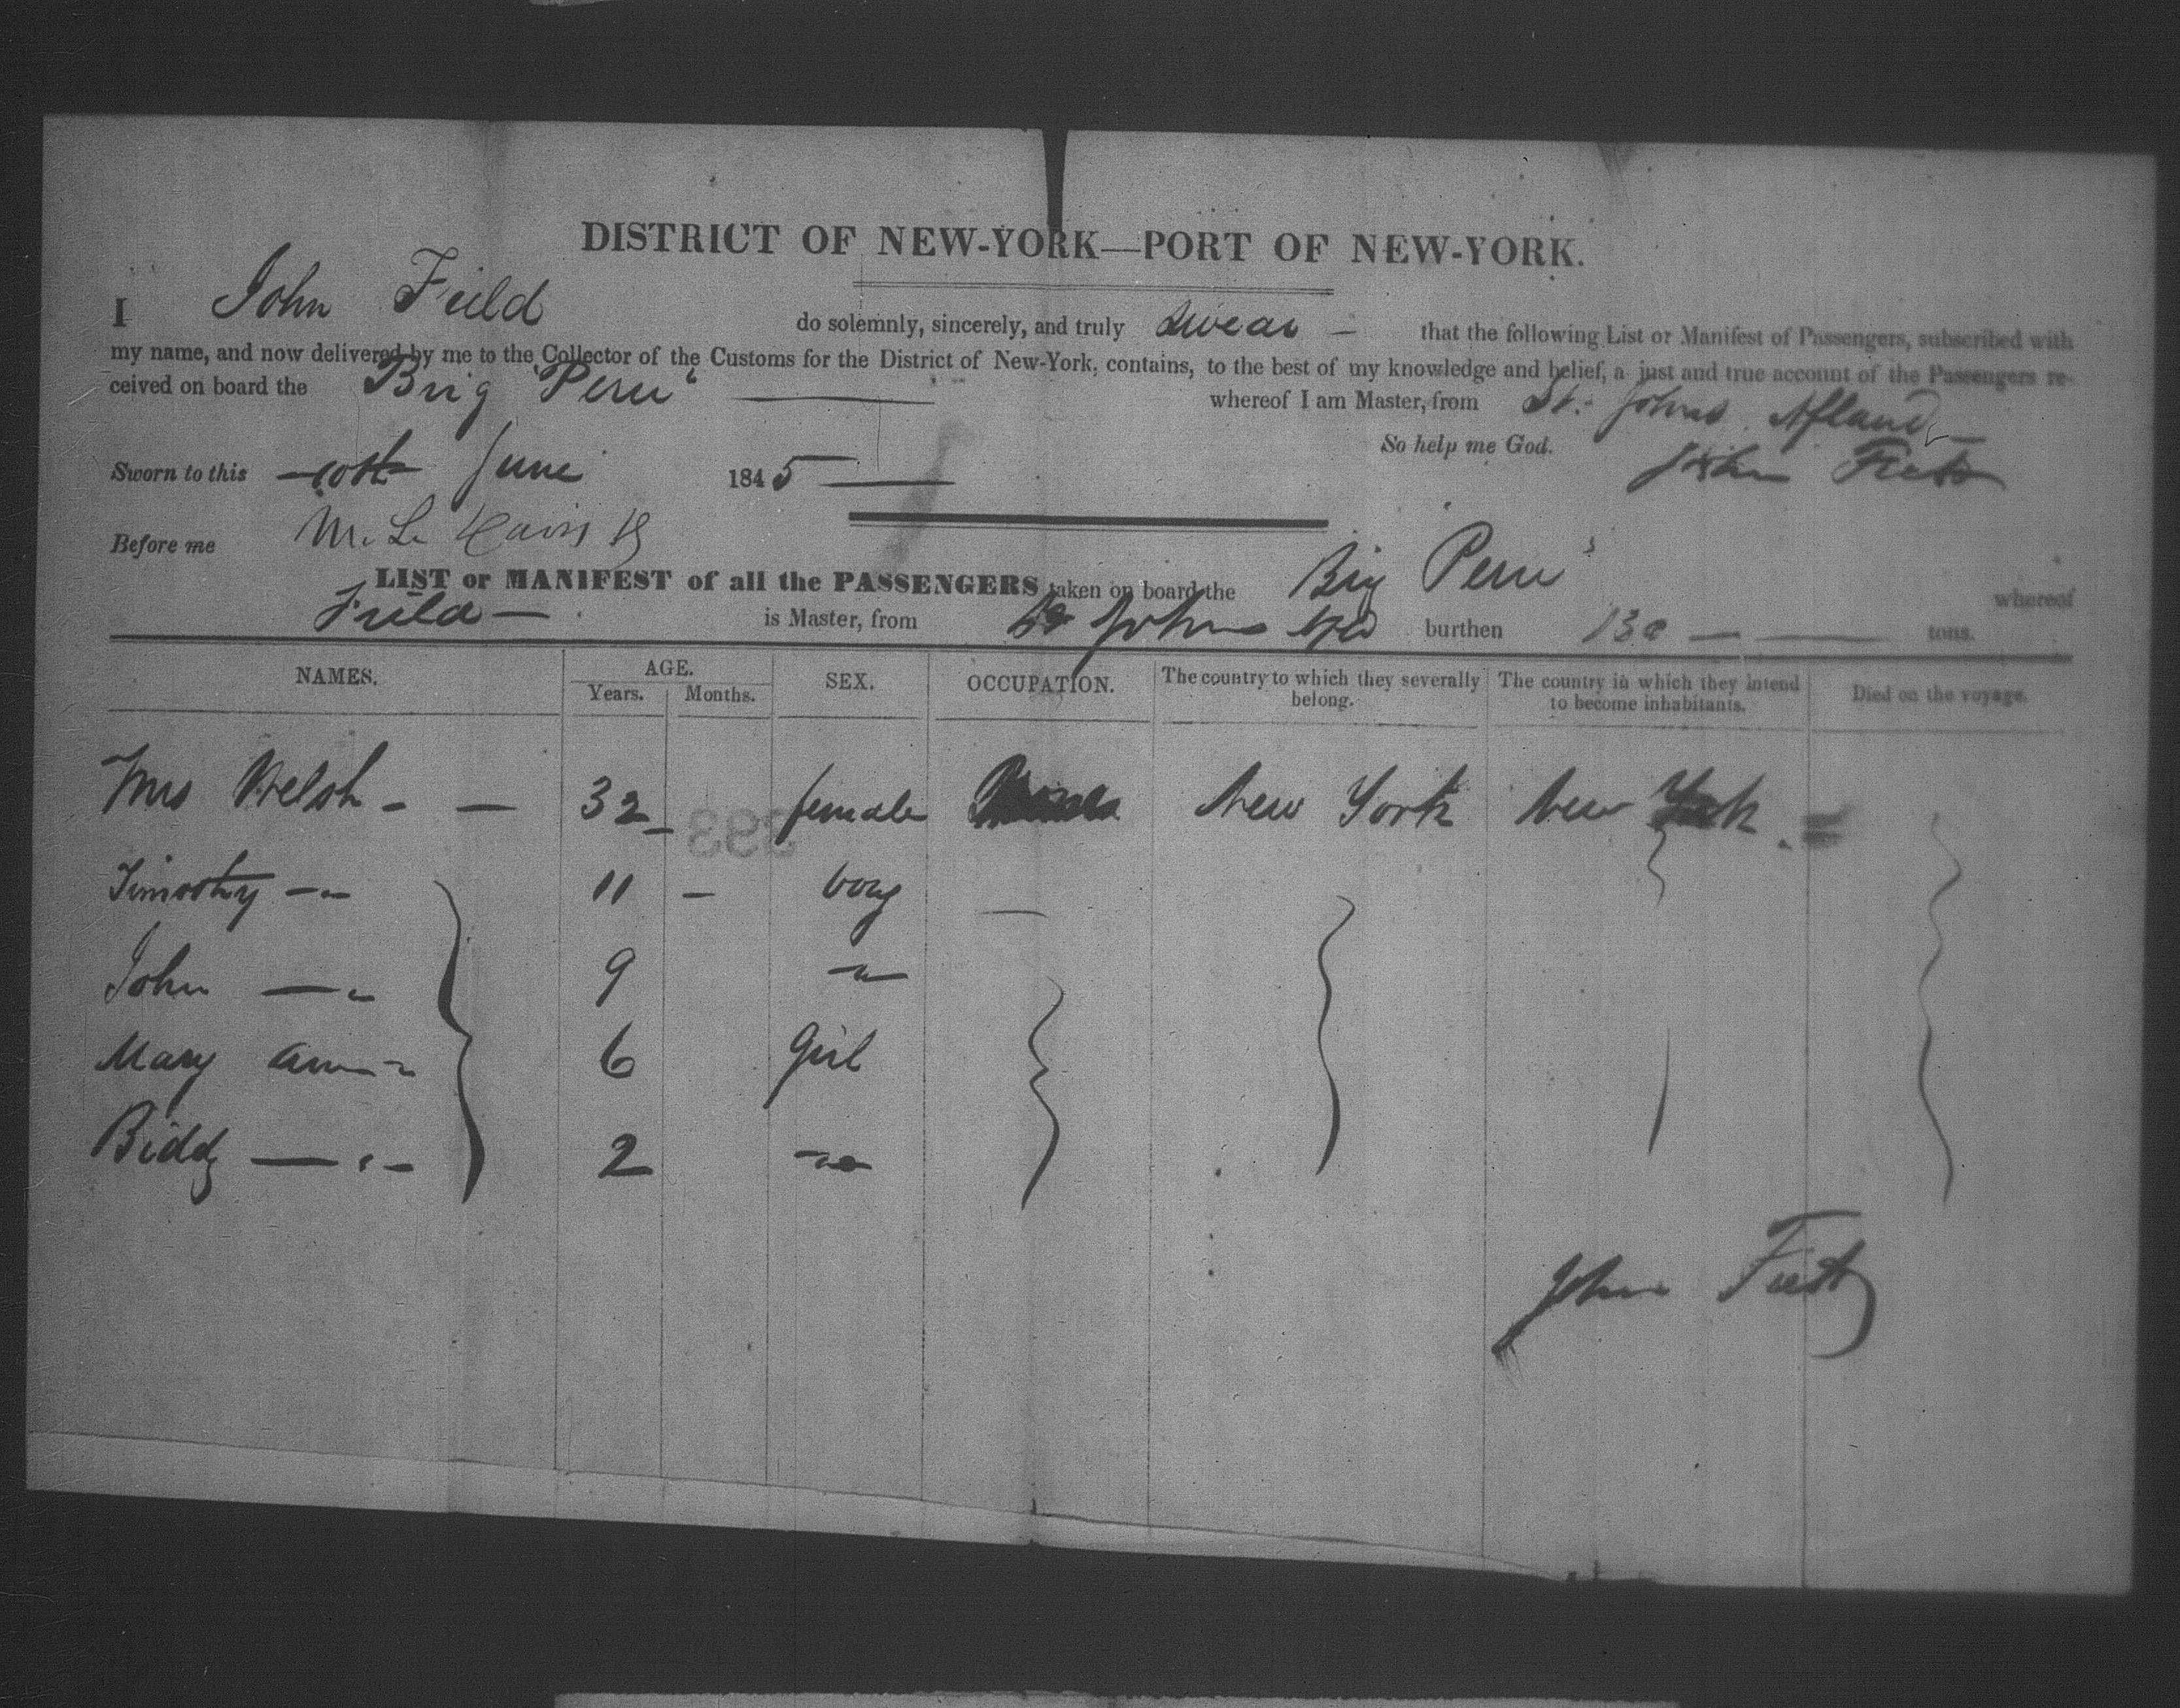 DISTRICT OF NEW-YORK—PORT OF NEW-YORK.
I John Field do solemnly, sincerely, and truly swear — that the following List or Manifest of Passengers, subscribed with
my name, and now delivered by me to the Collector of the Customs for the District of New-York, contains, to the best of my knowledge and belief, a just and true account of the Passengers re-
ceived on board the Brig "Peru" whereof I am Master, from St. Johns Nfland
So help me God.
Sworn to this 10th June 1845 John
Before me M. L. Davis
LIST or MANIFEST of all the PASSENGERS taken on board the Brig Peru whereof
Field — is Master, from St Johns Nfld burthen 130 — tons.
NAMES. AGE. Years. Months. SEX. OCCUPATION. The country to which they severally belong. The country in which they intend to become inhabitants. Died on the voyage.
Mrs Welsh - — 32 female New York New York
Timothy -- 11 - boy
John — 9 "
Mary Ann 6 Girl
Biddy — 2 "
John
393